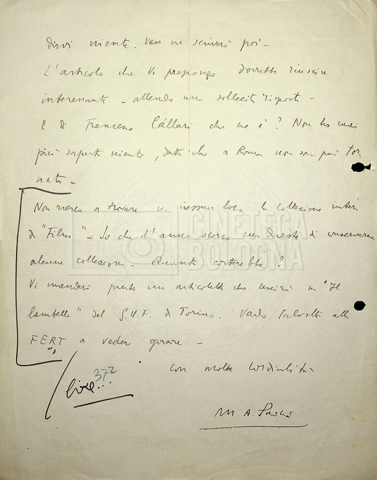 dirvi niente. Ven ne scriverò poi -
L'articolo che Vi propongo dovrebbe riuscire
interessante - attendo una sollecita risposta -
E di Francesco Càllari che ne è? Non ho mai
più saputo niente, dato che a Roma non son più tor
nato -
Non riesco a trovare in nessun luogo le collezione intera
di "Film" - So che l'anno scorso
alcune collezioni - Quanto costerebbe?
Vi manderò presto un articoletto che uscirà su "Il
Lambello" del G.U.F. di Torino. Vado talvolta alla
FERT a veder girare -
con molta cordialità
lire 372
M. A.
CINETECA
BOLOGNA